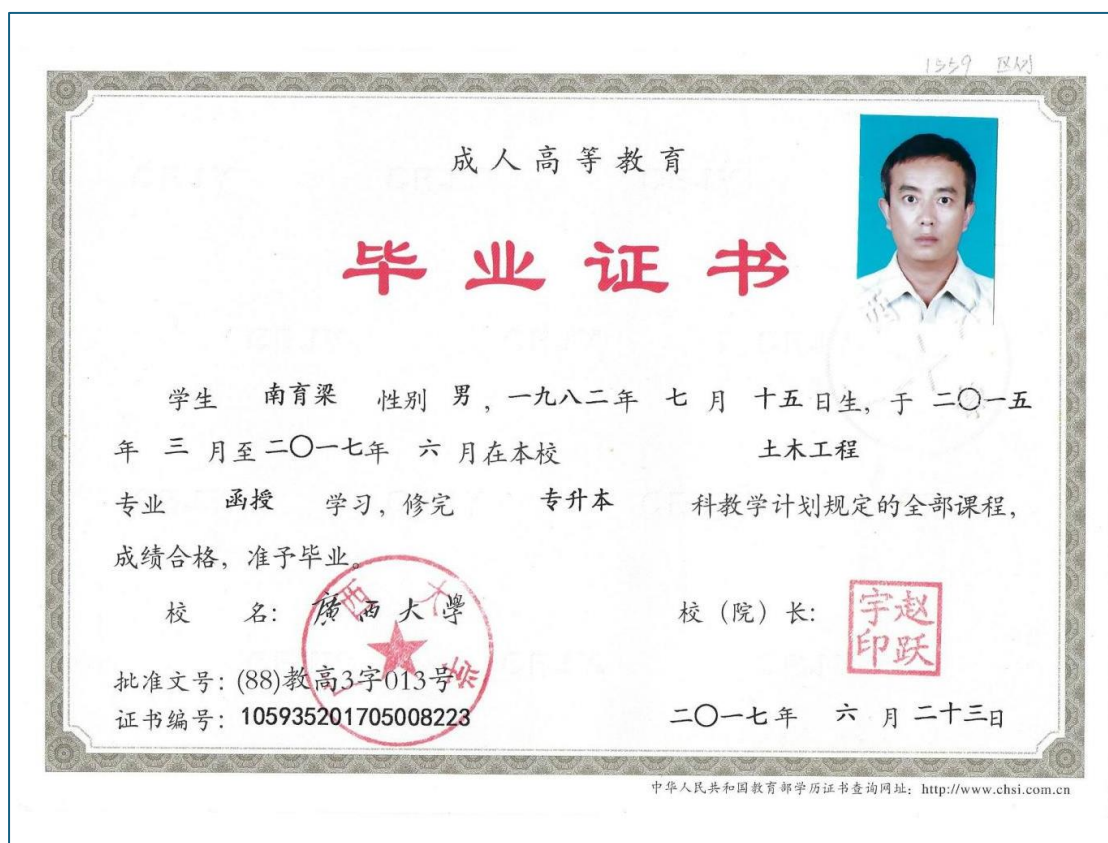 1559
成人高等教育
毕业证书
学生 南育梁 性别 男，一九八二年 七 月 十五日生，于 二〇一五
年 三 月至二〇一七年 六 月在本校 土木工程
专业 函授 学习，修完 专升本 科教学计划规定的全部课程，
成绩合格，准予毕业。
校 名：廣西大學
校（院）长：
赵跃
宇印
批准文号：(88)教高3字013号
证书编号：105935201705008223
二〇一七年 六 月 二十三日
中华人民共和国教育部学历证书查询网址：http://www.chsi.com.cn